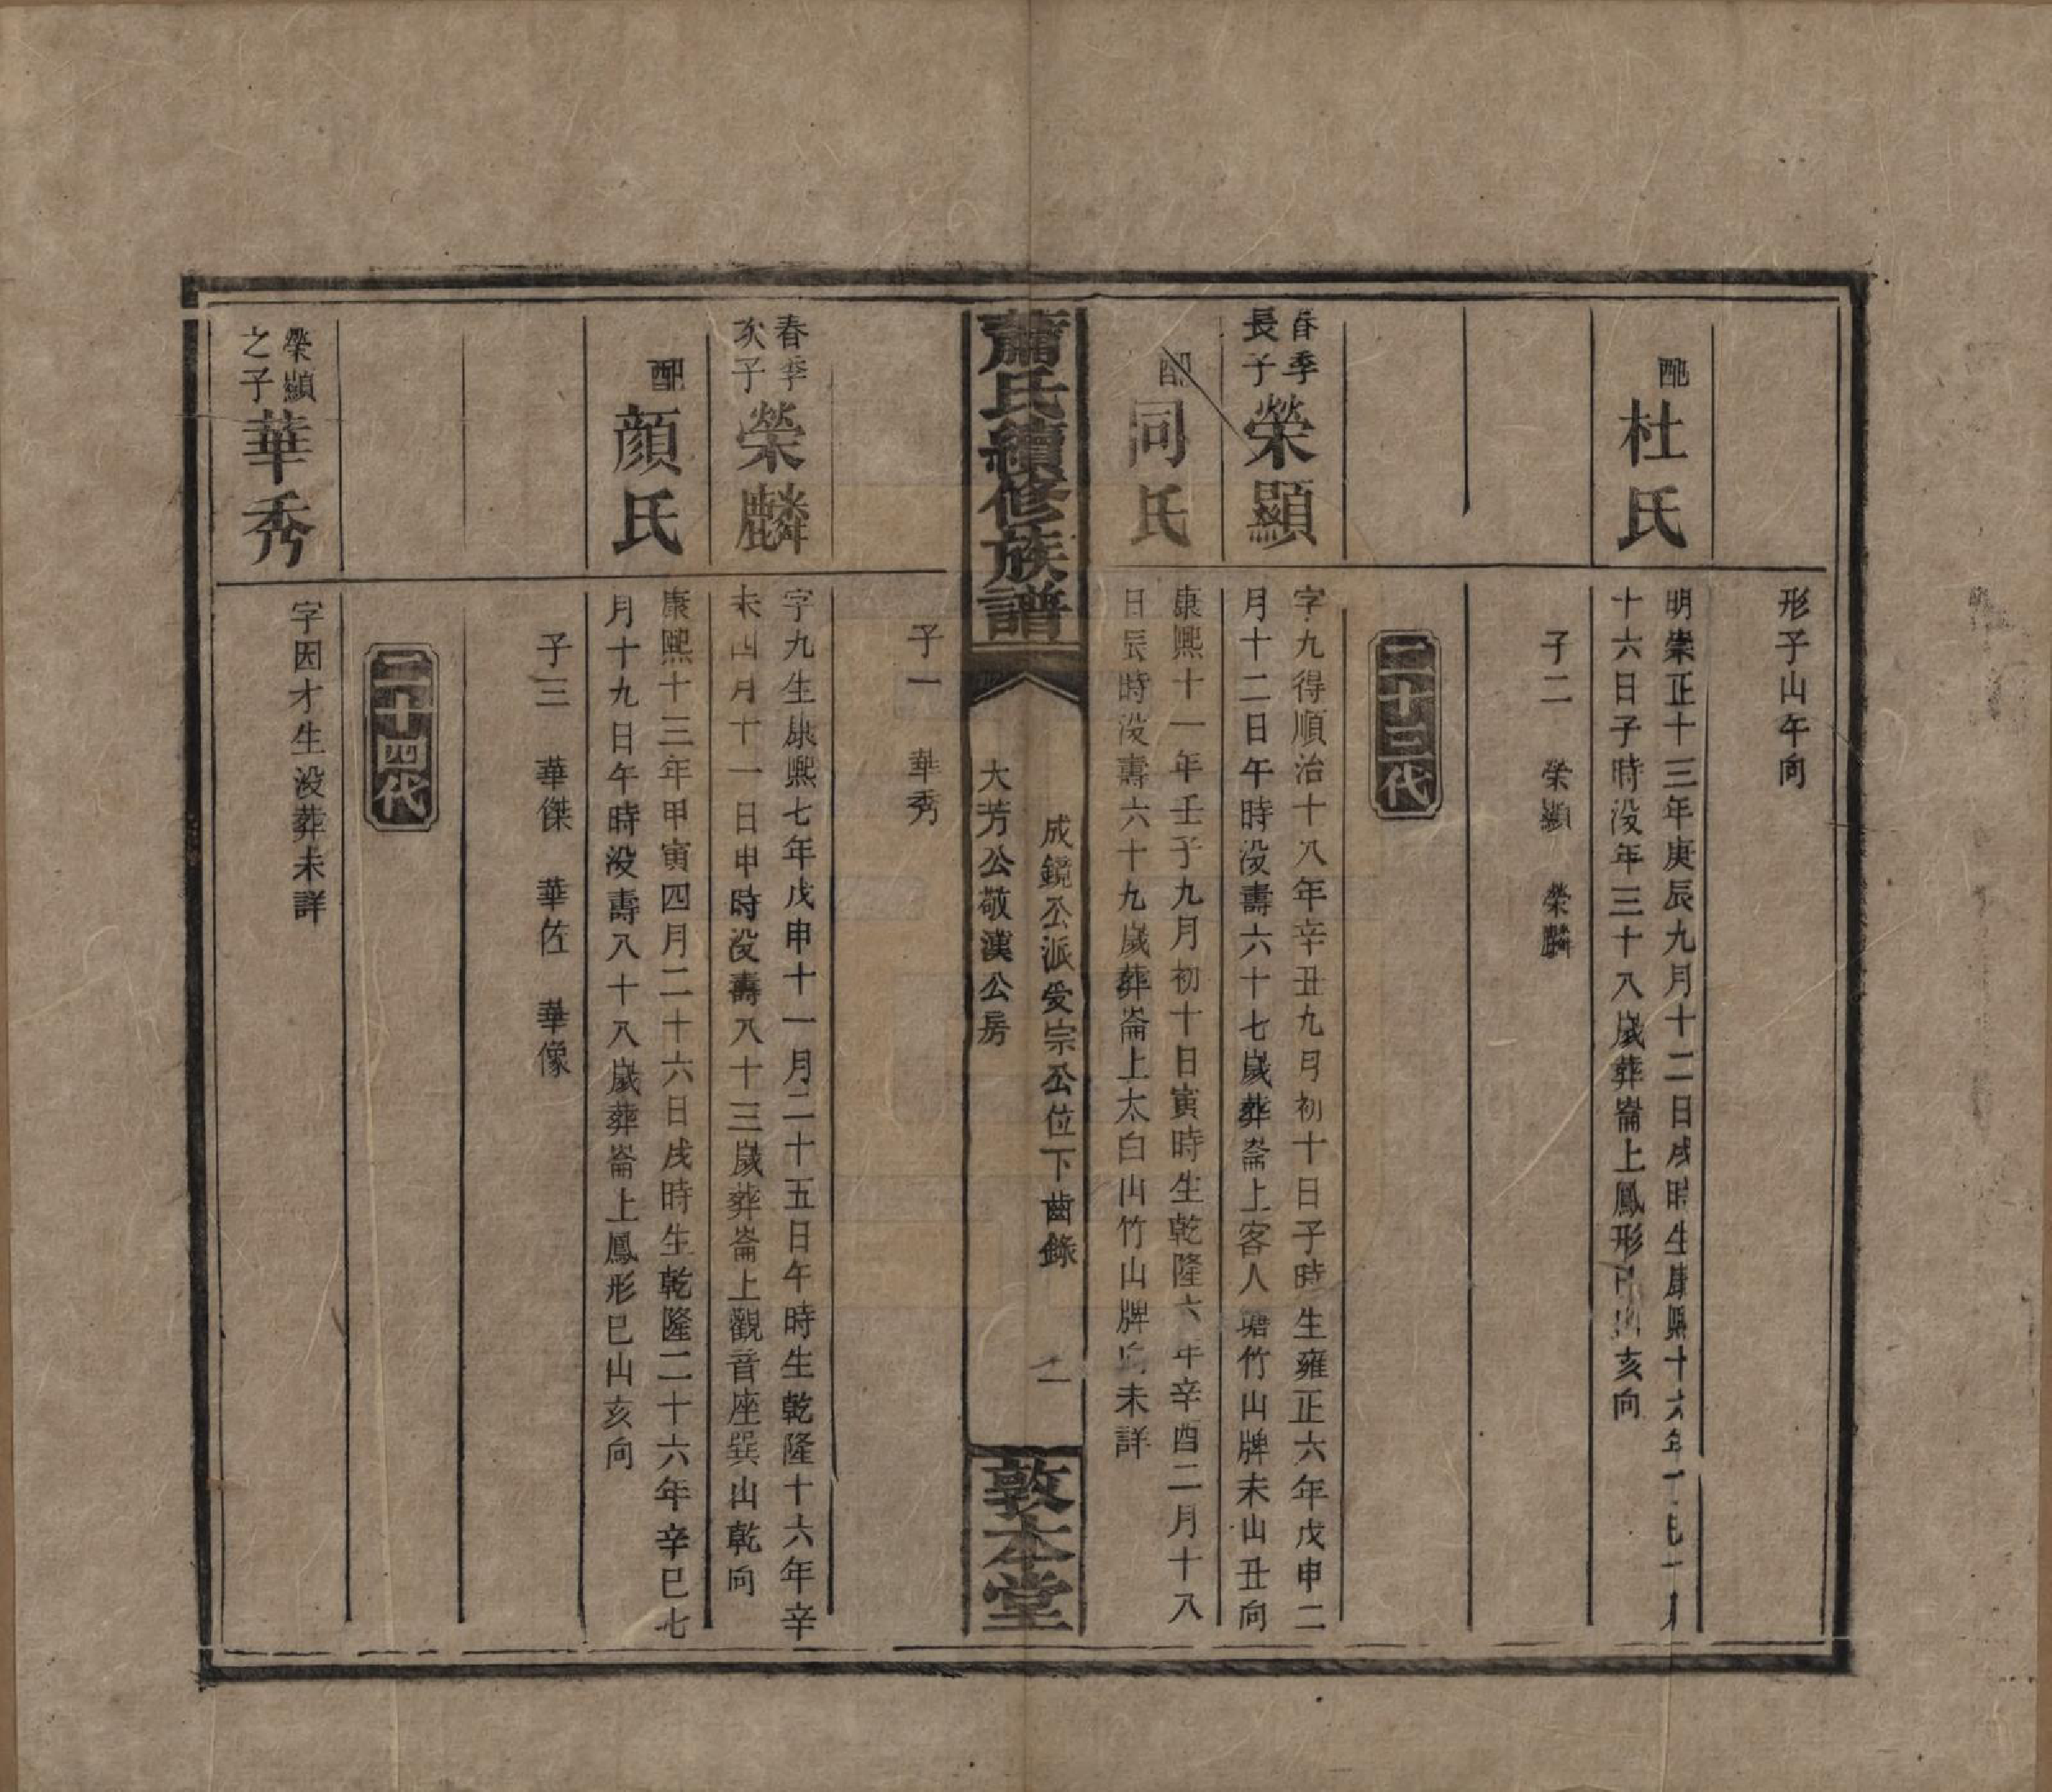 形子山午向
配
杜氏
明崇正十三年庚辰九月十二日戌時生康熙十六年
十六日子時沒年三十八歲葬崙上鳳形巳山亥向
子二 榮顯 榮麟
二十三代
春季
長子
榮顯
字九得順治十八年辛丑九月初十日子時生雍正六年戊申二
月十二日午時沒壽六十七歲葬崙上客人塘竹山牌未山丑向
配
同氏
康熙十一年壬子九月初十日寅時生乾隆六年辛酉二月十八
日辰時沒壽六十九歲葬崙上太白山竹山牌向未詳
蕭氏續修族譜
成鏡公派爰宗公位下齒錄
大芳公敬漢公房
敦本堂
子一 華秀
春季
次子
榮麟
字九生康熙七年戊申十一月二十五日午時生乾隆十六年辛
未四月十一日申時沒壽八十三歲葬崙上觀音座巽山乾向
配
顏氏
康熙十三年甲寅四月二十六日戌時生乾隆二十六年辛巳七
月十九日午時沒壽八十八歲葬崙上鳳形巳山亥向
子三 華傑 華佐 華像
二十四代
榮顯
之子
華秀
字因才生沒葬未詳